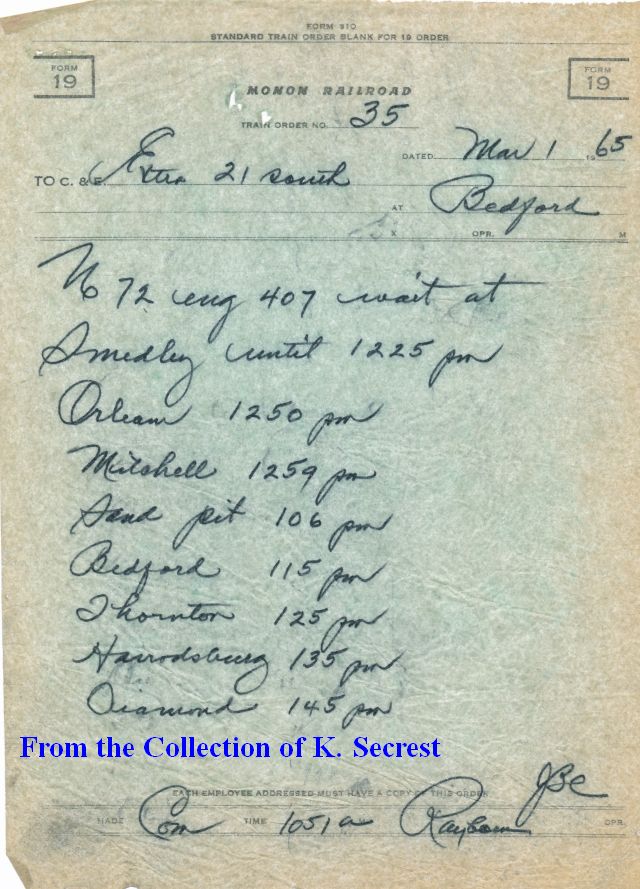 FORM 910
STANDARD TRAIN ORDER BLANK FOR 19 ORDER
FORM 19
FORM 19
MONON RAILROAD
TRAIN ORDER NO. 35
DATED Mar 1 1965
TO C. & E. Extra 21 south
AT Bedford
X OPR. M
No 72 eng 407 wait at
Smedley until 1225 pm
Orleans 1250 pm
Mitchell 1259 pm
Sand pit 106 pm
Bedford 115 pm
Thornton 125 pm
Harrodsburg 135 pm
Diamond 145 pm
From the Collection of K. Secrest
JBC
EACH EMPLOYEE ADDRESSED MUST HAVE A COPY OF THIS ORDER
MADE Com TIME 1051 a OPR.